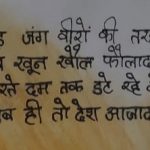 जंग वीरों की तरह
खून खौल फौलाद
दम तक डटे रहे
ही तो देश आजाद